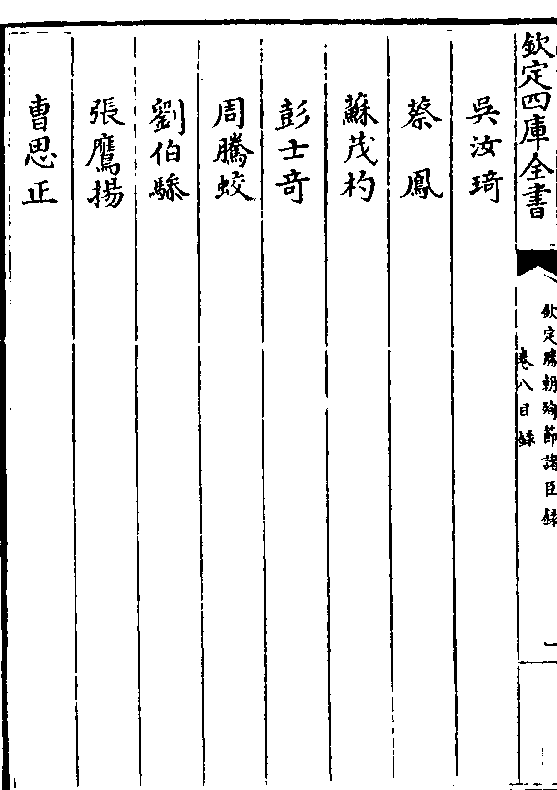 欽定四庫全書
欽定勝朝殉節諸臣錄
卷八目錄
一
吳汝琦
蔡鳳
蘇茂杓
彭士奇
周騰蛟
劉伯驂
張鷹揚
曹思正